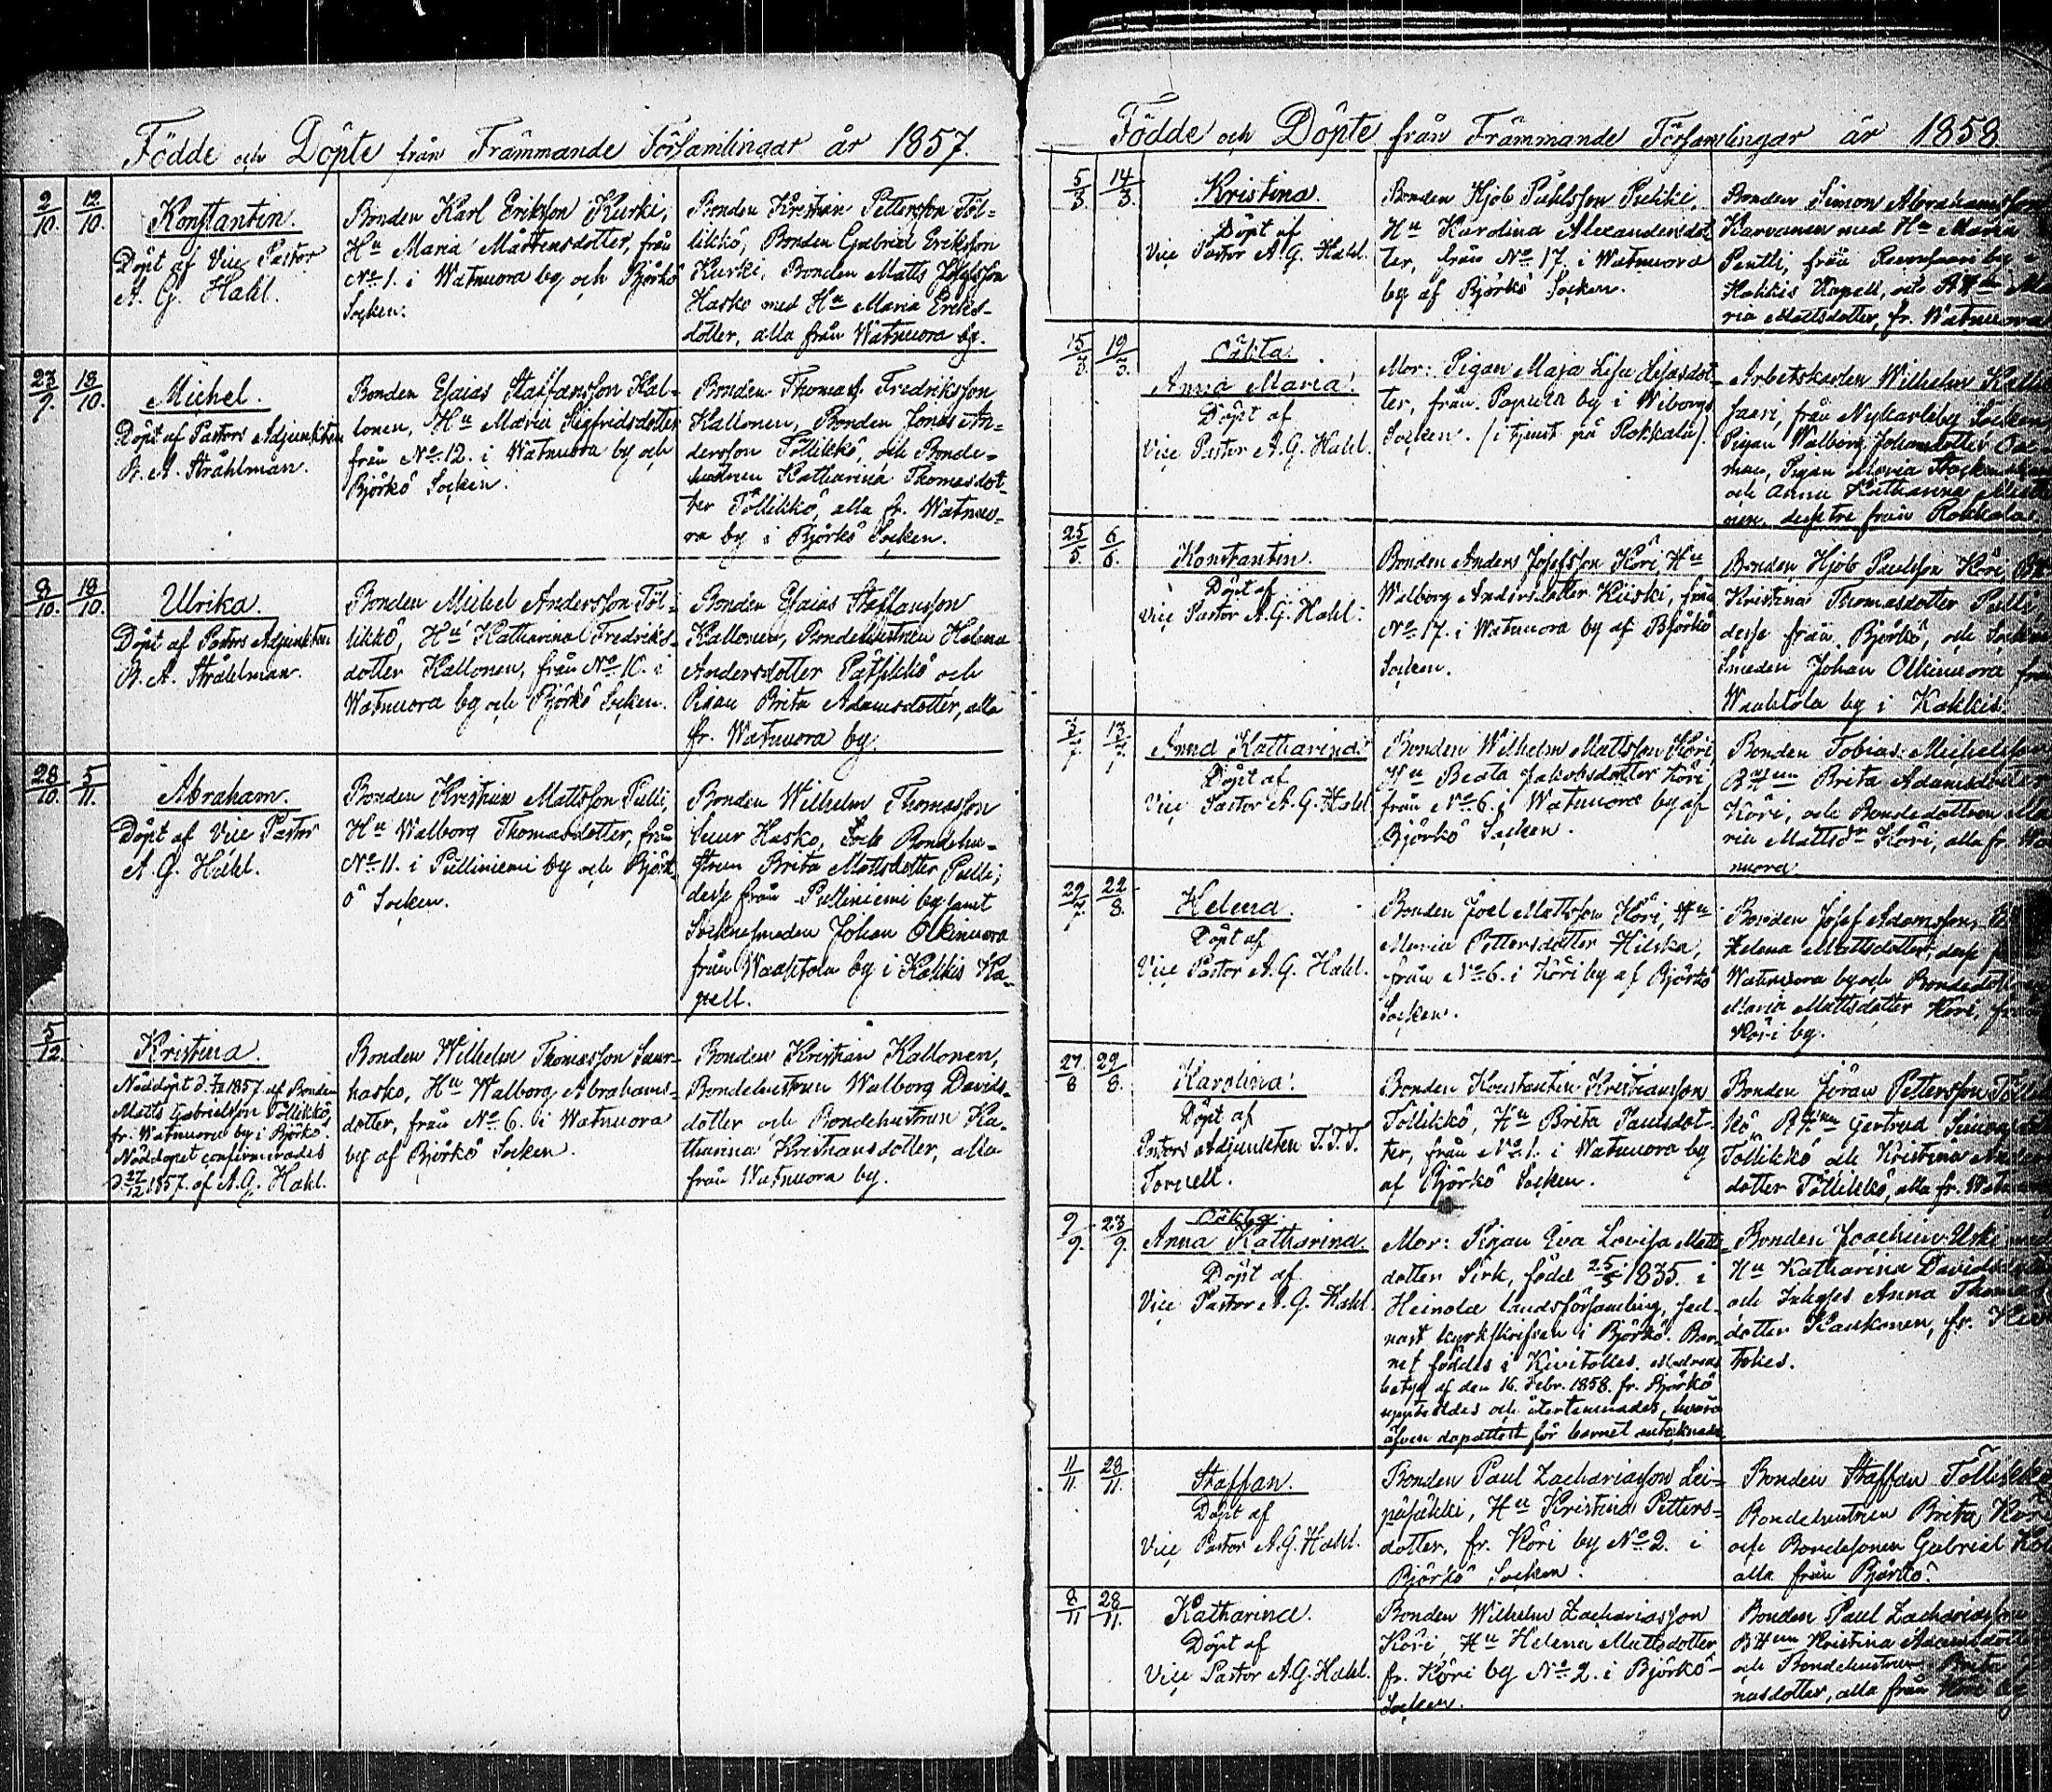 Födde och Döpte från Främmande Församlingar år 1857.
2/10. 12/10.
Konstantin.
Döpt af Vice Pastor
A. G. Hahl.
Bonden Karl Eriksson Kurki,
Hu Maria Mårtensdotter, från
No 1. i Watnuora by och Björkö
Socken.
Bonden Kristian Pettersson Töl-
likkö, Bonden Gabriel Eriksson
Kurki, Bonden Matts Josefsson
Hasko med Hu Maria Eriks-
dotter, alla från Watnuora by.
27/9. 18/10.
Michel.
Döpt af Pastors Adjunkten
A. Stråhlman.
Bonden Esaias Staffansson Kal-
lonen, Hu Maria Sigfridsdotter
från No 12. i Watnuora by och
Björkö Socken.
Bonden Thomas Fredriksson
Kallonen, Bonden Jonas An-
dersson Töllikkö, och Bonde-
hustrun Katharina Thomasdot-
ter Töllikkö, alla fr. Watnuo-
ra by i Björkö Socken.
8/10. 18/10.
Ulrika.
Döpt af Pastors Adjunkten
A. Stråhlman.
Bonden Michel Andersson Töl-
likkö, Hu Katharina Fredriks-
dotter Kallonen, från No 10. i
Watnuora by och Björkö Socken.
Bonden Esaias Staffansson
Kallonen, Bondehustrun Helena
Andersdotter och
Pigan Brita Adamsdotter, alla
fr. Watnuora by.
28/10. 5/11.
Abraham.
Döpt af Vice Pastor
A. G. Hahl.
Bonden Kristian Mattsson Pulli,
Hu Walborg Thomasdotter, från
No 11. i Pulliniemi by och Björk-
ö Socken.
Bonden Wilhelm Thomasson
Suur Hasko, Bondehu-
strun Brita Mattsdotter Pulli;
desse från Pulliniemi by samt
Socknesmeden Johan Olkinuora
från Waahtola by i Kakkis Ka-
pell.
5/12.
Kristina.
Nöddöpt d. 7/12 1857. af Bonden
Matts Gabrielson Töllikkö,
fr. Watnuora by i Björkö.
Nöddopet confirmerades
d. 27/12 1857. af A. G. Hahl.
Bonden Wilhelm Thomasson Suur-
hasko, Hu Walborg Abrahams-
dotter, från No 6. i Watnuora
by af Björkö Socken.
Bonden Kristian Kallonen,
Bondehustrun Walborg Davids-
dotter och Bondehustrun Ka-
tharina Kristiansdotter, alla
från Watnuora by.
Födde och Döpte från Främmande Församlingar år 1858
5/3. 14/3.
Kristina.
Döpt af
Vice Pastor A. G. Hahl.
Bonden Hjob Pahlsson
Hu Karolina Alexandersdot
ter, från No 17. i Watnuora
by af Björkö Socken.
Bonden Simon Abrahamsson
Karvanen med Hu Maria
Pentti, från by i
Kakkis Kapell, och Ma
ria Mattsdotter, fr. Watnuora
15/3. 19/3.
Oäkta.
Anna Maria.
Döpt af
Vice Pastor A. G. Hahl.
Mor: Pigan Maja Lisa Elisasdot-
ter, från Papula by i Wiborgs
Socken. (i tjenst på Rokkala).
Arbetskarlen Wilhelm
från Nykarleby Socken,
Pigan Walborg Johansdotter
Pigan Maria
och Anna Katharina
nen, desse tre från Rokkala.
25/5. 6/6.
Konstantin.
Döpt af
Vice Pastor A. G. Hahl.
Bonden Anders Josefsson Köri, Hu
Walborg Andersdotter Kiiski, från
No 17. i Watnuora by af Björkö
Socken.
Bonden Hjob Paulsson Köri,
Kristina Thomasdotter Pulli
desse från Björkö, och Socken
Smeden Johan Ollinuora från
Waahtola by i Kakkis.
3/7. 13/7.
Anna Katharina.
Döpt af
Vice Pastor A. G. Hahl
Bonden Wilhelm Mattsson Köri,
Hu Beata Jakobsdotter Köri
från No 6. i Watnuora by af
Björkö Socken.
Bonden Tobias Michelsson
Brita Adamsdotter
Köri, och Bondedottren Ma
ria Mattsdr Köri, alla fr. Wat
nuora.
29/7. 22/8.
Helena.
Döpt af
Vice Pastor A. G. Hahl.
Bonden Joel Mattsson Köri, Hu
Maria Pettersdotter Hilska,
från No 6. i Köri by af Björkö
Socken.
Bonden Josef Adamsson,
Helena Mattsdotter; desse
Watnuora by och Bondedot
Maria Mattsdotter Köri, fr
Köri by.
27/8 29/8.
Karolina.
Döpt af
Pastors Adjunkten T. T. T.
Tornell.
Bonden Konstantin Kristiansson
Töllikkö, Hu Brita Paulsdot-
ter, från No 1. i Watnuora by
af Björkö Socken.
Bonden Jöran Pettersson Tölli
kö, Gertrud Simons
Töllikkö och Kristina Anders
dotter Töllikkö, alla fr. Watnuora
9/9. 23/9.
Oäkta
Anna Katharina.
Döpt af
Vice Pastor A. G. Hahl.
Mor: Pigan Eva Lovisa Matts
dotter Sirk, född 25/5 1835. i
Heinola landsförsamling, sed-
nast kyrkskrifven i Björkö. Bar-
net föddes i Kivitolles.
betyg af den 16. Febr. 1858. fr. Björkö
och
för barnet antecknades
Bonden Joachim Uski med
Hu Katharina Davidsdotter
och Inhyses Anna Thomas
dotter Kaukonen, fr. Kivi
tolles.
11/11. 28/11.
Staffan.
Döpt af
Vice Pastor A. G. Hahl.
Bonden Paul Zachariasson Lei-
Hu Kristina Petters-
dotter, fr. Köri by No 2. i
Björkö Socken.
Bonden Staffan Töllikkö
Bondehustrun Brita Köri
och Bondesonen Gabriel Kö
alla från Björkö.
8/11 28/11.
Katharina.
Döpt af
Vice Pastor A. G. Hahl.
Bonden Wilhelm Zachariasson
Köri, Hu Helena Mattsdotter
fr. Köri by No 2. i Björkö
Socken.
Bonden Paul Zachariasson
Kristina Adamsdott
och Bondehustrun Brita
nasdotter, alla från Köri by